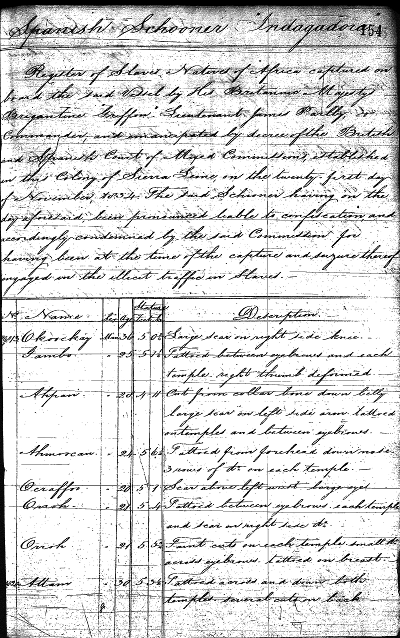 Spanish Schooner "Indagadora" 154
Register of Slaves, Natives of Africa captured on
board the said Vessel by His Britannic Majesty's
Brigantine "Griffon" Lieutenant James Reilly
Commander, and emancipated by decree of the British
and Spanish Court of Mixed Commissions, established
in this Colony of Sierra Leone, on the twenty first day
of November, 1834. The said Schooner having on the
day aforesaid been pronounced liable to confiscation and
accordingly condemned by the said Commission for
having been at the time of the capture and seizure thereof
engaged in the illicit traffic in Slaves.
No. Name Sex Age Stature Feet In Description
Man 36 5 Large scar on right side knee
" 25 5 Tattoed between eyebrows and each
temple right thumb deformed
Ahpan " 20 5 Cut from collar bone down belly
large scar on left side arm tattoed
on temples and between eyebrows
" 24 5 Tattoed from forehead down nose
3 rows of do on each temple
" 20 5 1 Scar above left wrist large eyes
" 21 5 4 Tattoed between eyebrows each temple
and scar on right side do
" 21 5 Faint cuts on each temple small do
across eyebrows tattoed on breast
Attam " 30 5 Tattoed across and down both
temples several cuts on back